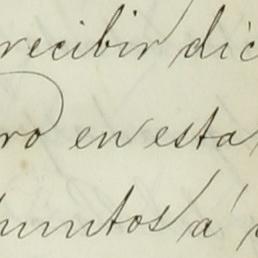 recibir dic
ro en esta
puntos á